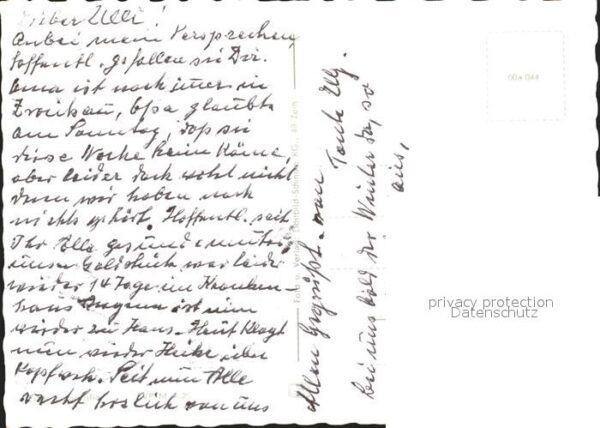 Lieber Ulli!
Anbei mein Versprechen
Hoffentl. gefallen sie Dir.
Oma ist noch immer in
Zwickau, Opa glaubte
am Sonntag, daß sie
diese Woche heim käme,
aber leider doch wohl nicht
denn wir haben noch
nichts gehört. Hoffentl. seit
Ihr Alle gesund u. munter,
unser Goldstück war leider
wieder 14 Tage im Kranken-
haus ist nun
wieder zu Haus. Heut klagt
nun wieder Heike über
Kopfweh. Seit nun Alle
recht herzlich von uns
Allen Gegrüßt. von Tante Elly.
bei uns bald der Winter da, so
aus,
Foto u. Verlag
KG.,
00a 044
privacy protection
Datenschutz